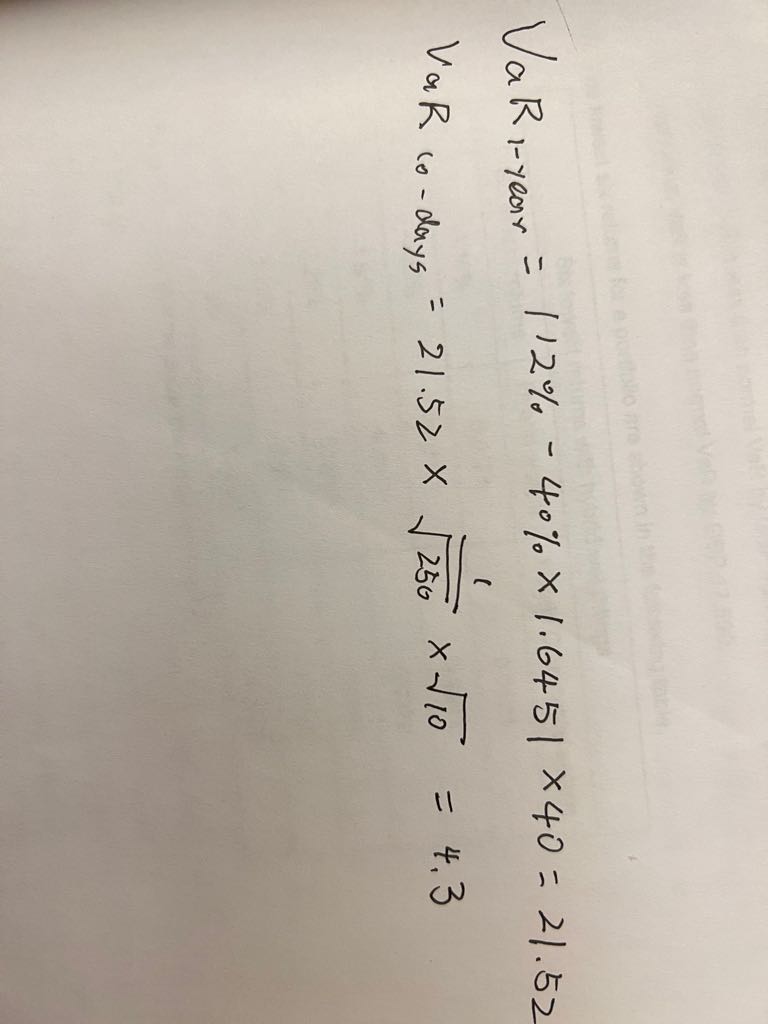 VaR 1-year = |12% - 40% × 1.645| × 40 = 21.52
VaR 10-days = 21.52 × 1/√250 × √10 = 4.3